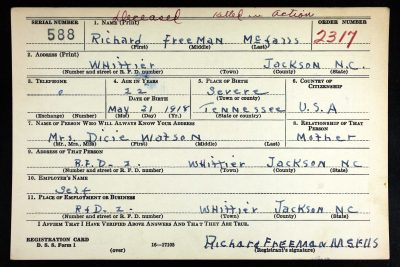 Deceased Killed in action
SERIAL NUMBER 1. NAME (Print) ORDER NUMBER
588 Richard Freeman McFalls 2317
(First) (Middle) (Last)
2. ADDRESS (Print)
Whittier Jackson N.C.
(Number and street or R. F. D. number) (Town) (County) (State)
3. TELEPHONE 4. AGE IN YEARS 5. PLACE OF BIRTH 6. COUNTRY OF CITIZENSHIP
22 Severe
DATE OF BIRTH (Town or county)
May 21 1918 Tennessee U.S.A
(Exchange) (Number) (Mo.) (Day) (Yr.) (State or country)
7. NAME OF PERSON WHO WILL ALWAYS KNOW YOUR ADDRESS 8. RELATIONSHIP OF THAT PERSON
Mrs. Dicie Watson Mother
(Mr., Mrs., Miss) (First) (Middle) (Last)
9. ADDRESS OF THAT PERSON
R.F.D. 2. Whittier Jackson N.C
(Number and street or R. F. D. number) (Town) (County) (State)
10. EMPLOYER'S NAME
Self
11. PLACE OF EMPLOYMENT OR BUSINESS
RFD. 2. Whittier Jackson N.C
(Number and street or R. F. D. number) (Town) (County) (State)
I AFFIRM THAT I HAVE VERIFIED ABOVE ANSWERS AND THAT THEY ARE TRUE.
REGISTRATION CARD Richard Freeman
D. S. S. Form 1 (over) 16—17105 (Registrant's signature)